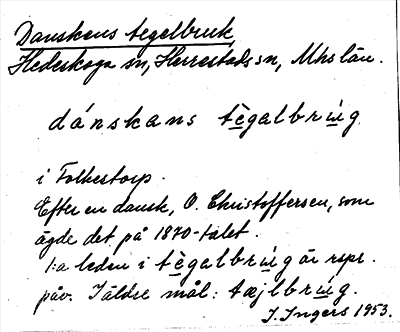 Danskens tegelbruk
Hedeskoga sn, Herrestads sn, Mhs län.
dánskans tègalbrúg
i Folkestorp.
Efter en dansk, O. Christoffersen, som
ägde det på 1870-talet.
1:a leden i tègalbrúg är rspr.
påv. I äldre mål: tæjlbrúg.
I. Ingers 1953.